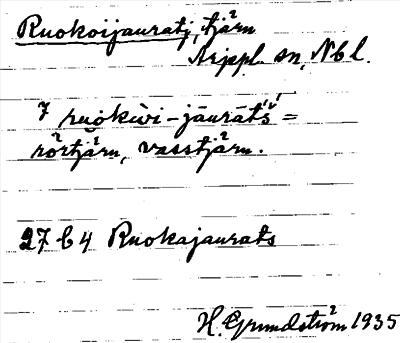 Ruokoijauratj, tjärn
Arjepl. sn, Nbl.
7 ruo̯kùi-jāurāt́š =
rörtjärn, vasstjärn.
27 b 4 Ruokajaurats
H. Grundström 1935